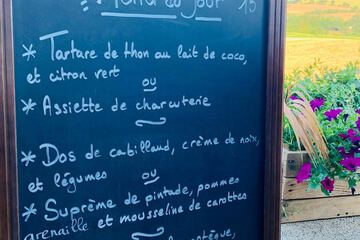 Menu du jour 15
* Tartare de thon au lait de coco,
et citron vert
ou
* Assiette de charcuterie
* Dos de cabillaud, crème de noix,
et légumes
ou
* Suprême de pintade, pommes
grenaille et mousseline de carottes